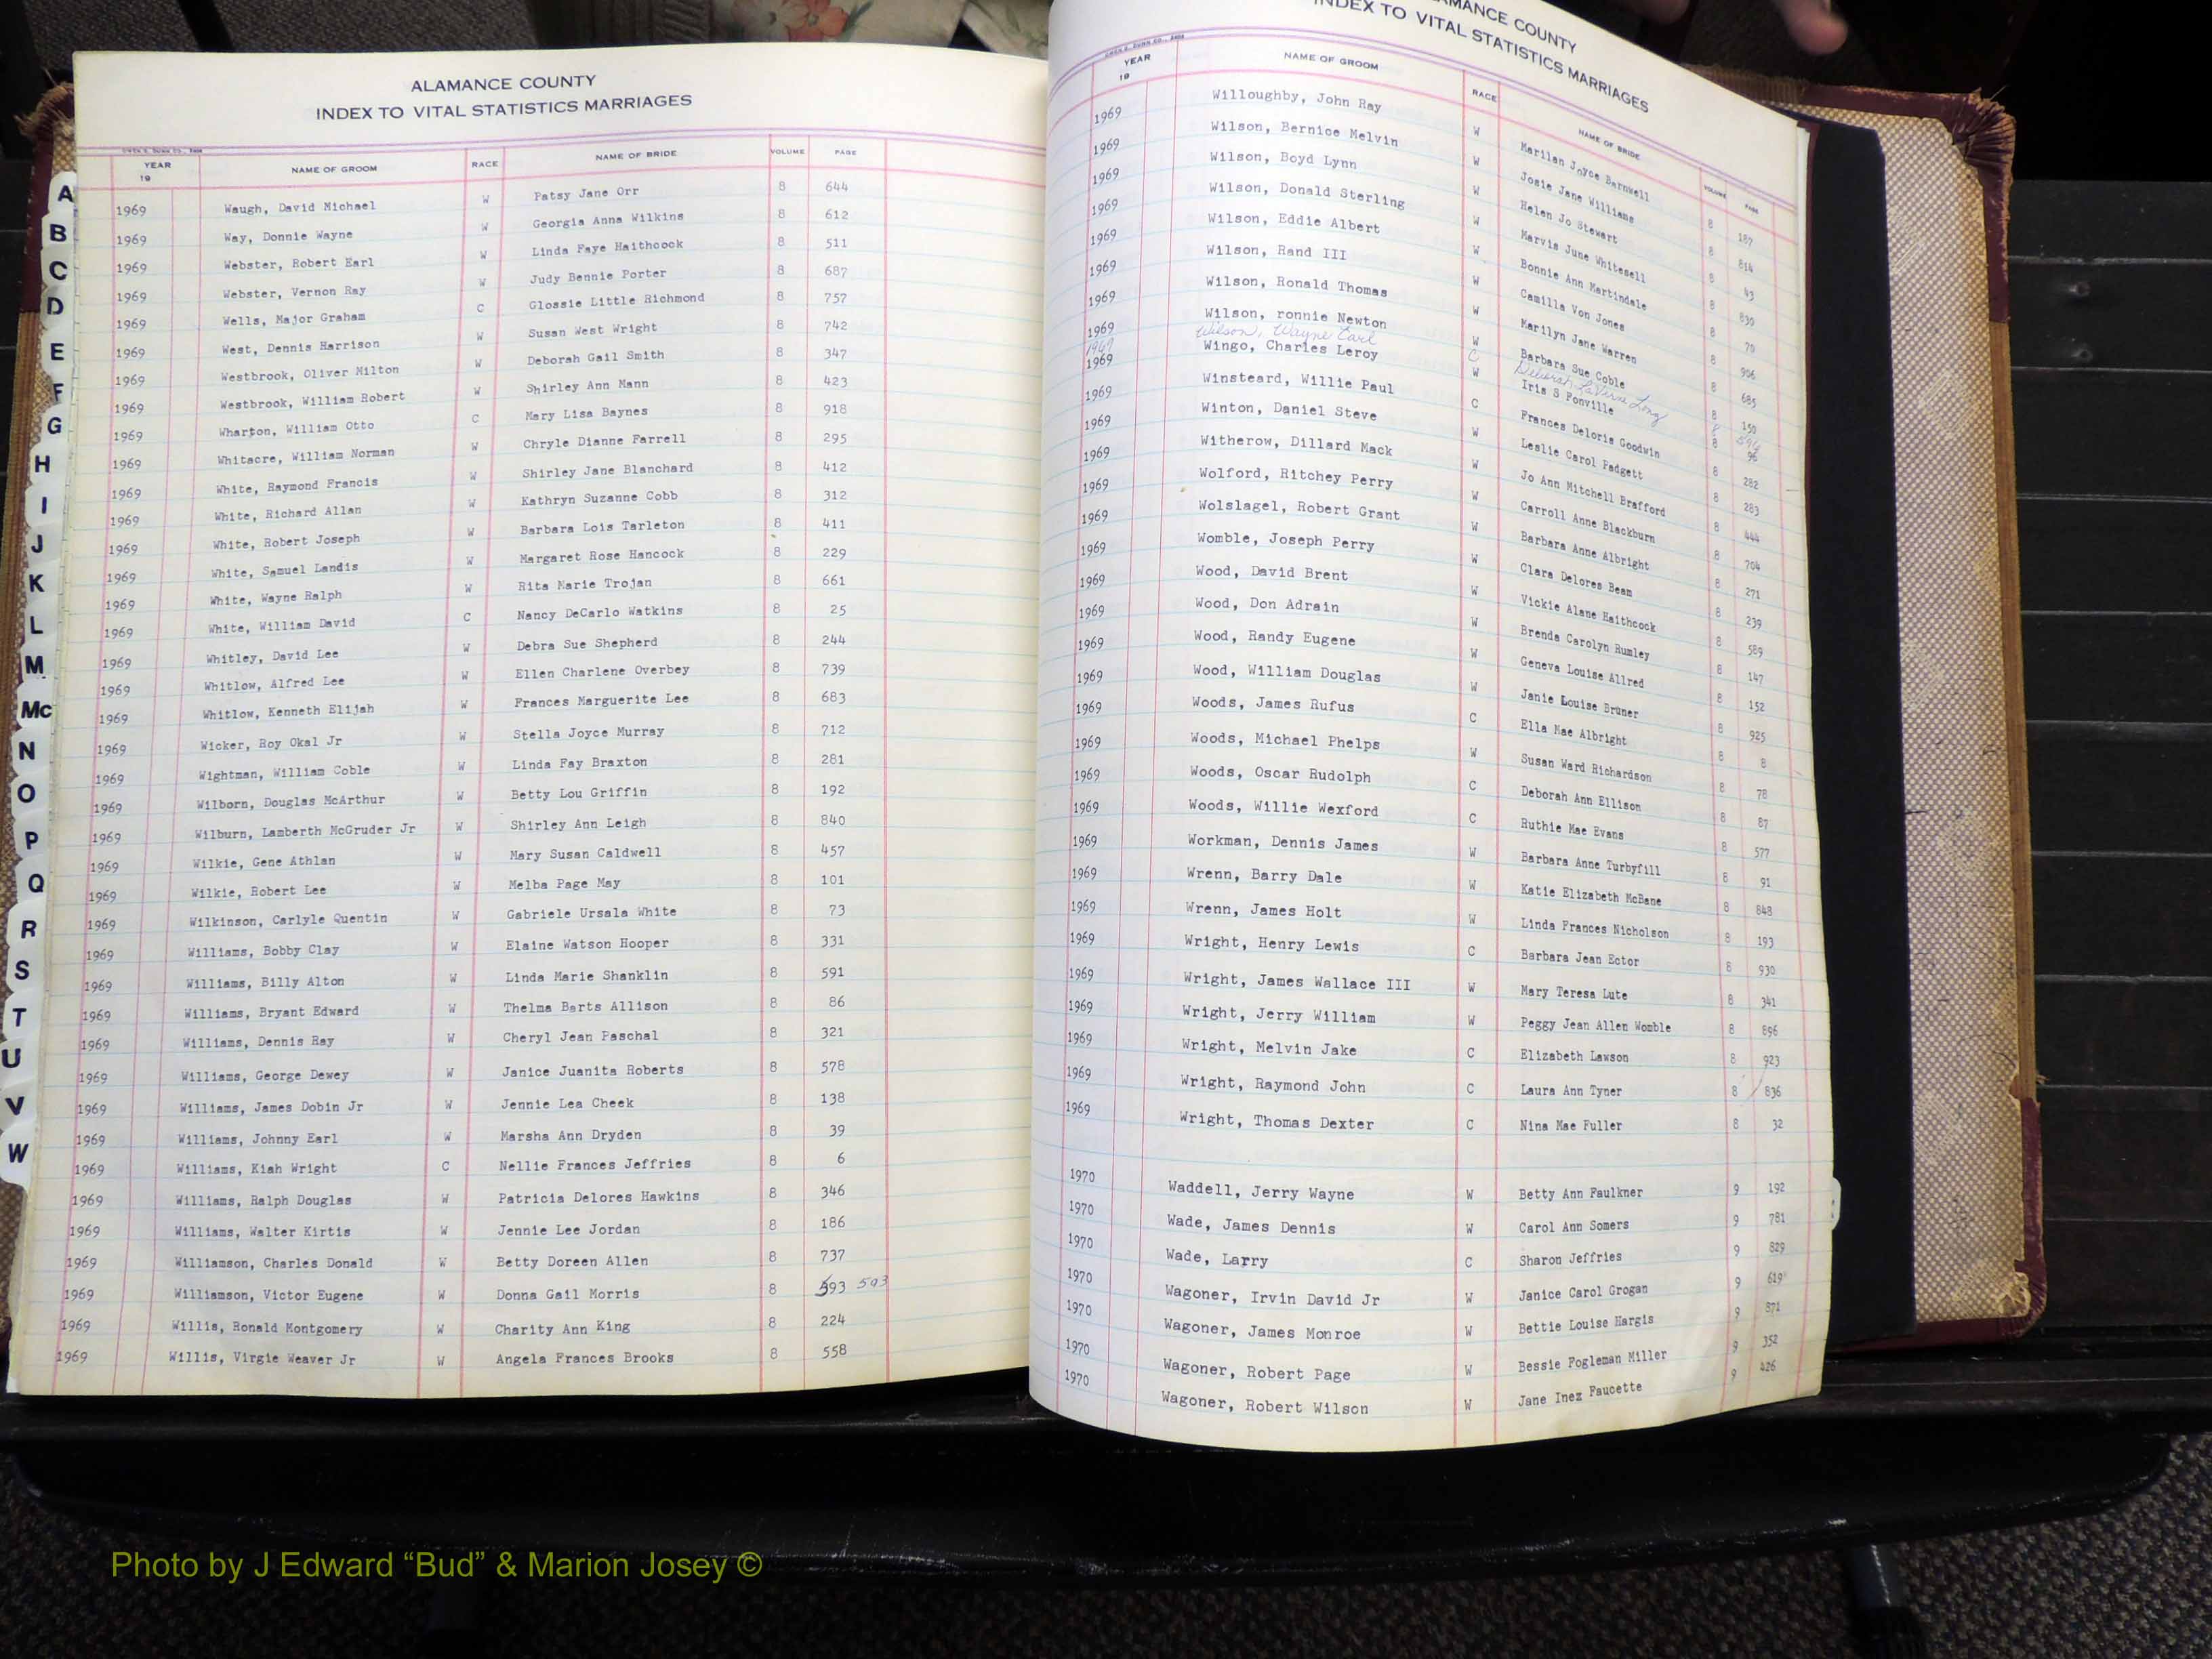 ALAMANCE COUNTY
INDEX TO VITAL STATISTICS MARRIAGES
OWEN G. DUNN CO.,
YEAR 19 NAME OF GROOM RACE NAME OF BRIDE VOLUME PAGE
1969 Waugh, David Michael W Patsy Jane Orr 8 644
1969 Way, Donnie Wayne W Georgia Anna Wilkins 8 612
1969 Webster, Robert Earl W Linda Faye Haithcock 8 511
1969 Webster, Vernon Ray W Judy Bennie Porter 8 687
1969 Wells, Major Graham C Glossie Little Richmond 8 757
1969 West, Dennis Harrison W Susan West Wright 8 742
1969 Westbrook, Oliver Milton W Deborah Gail Smith 8 347
1969 Westbrook, William Robert W Shirley Ann Mann 8 423
1969 Wharton, William Otto C Mary Lisa Baynes 8 918
1969 Whitacre, William Norman W Chryle Dianne Farrell 8 295
1969 White, Raymond Francis W Shirley Jane Blanchard 8 412
1969 White, Richard Allan W Kathryn Suzanne Cobb 8 312
1969 White, Robert Joseph W Barbara Lois Tarleton 8 411
1969 White, Samuel Landis W Margaret Rose Hancock 8 229
1969 White, Wayne Ralph W Rita Marie Trojan 8 661
1969 White, William David C Nancy DeCarlo Watkins 8 25
1969 Whitley, David Lee W Debra Sue Shepherd 8 244
1969 Whitlow, Alfred Lee W Ellen Charlene Overbey 8 739
1969 Whitlow, Kenneth Elijah W Frances Marguerite Lee 8 683
1969 Wicker, Roy Okal Jr W Stella Joyce Murray 8 712
1969 Wightman, William Coble W Linda Fay Braxton 8 281
1969 Wilborn, Douglas McArthur W Betty Lou Griffin 8 192
1969 Wilburn, Lamberth McGruder Jr W Shirley Ann Leigh 8 840
1969 Wilkie, Gene Athlan W Mary Susan Caldwell 8 457
1969 Wilkie, Robert Lee W Melba Page May 8 101
1969 Wilkinson, Carlyle Quentin W Gabriele Ursala White 8 73
1969 Williams, Bobby Clay W Elaine Watson Hooper 8 331
1969 Williams, Billy Alton W Linda Marie Shanklin 8 591
1969 Williams, Bryant Edward W Thelma Barts Allison 8 86
1969 Williams, Dennis Ray W Cheryl Jean Paschal 8 321
1969 Williams, George Dewey W Janice Juanita Roberts 8 578
1969 Williams, James Dobin Jr W Jennie Lea Cheek 8 138
1969 Williams, Johnny Earl W Marsha Ann Dryden 8 39
1969 Williams, Kiah Wright C Nellie Frances Jeffries 8 6
1969 Williams, Ralph Douglas W Patricia Delores Hawkins 8 346
1969 Williams, Walter Kirtis W Jennie Lee Jordan 8 186
1969 Williamson, Charles Donald W Betty Doreen Allen 8 737
1969 Williamson, Victor Eugene W Donna Gail Morris 8 593 593
1969 Willis, Ronald Montgomery W Charity Ann King 8 224
1969 Willis, Virgie Weaver Jr W Angela Frances Brooks 8 558
A
B
C
D
E
F
G
H
I
J
K
L
M
Mc
N
O
P
Q
R
S
T
U
V
W
ALAMANCE COUNTY
INDEX TO VITAL STATISTICS MARRIAGES
OWEN G. DUNN CO.,
YEAR 19 NAME OF GROOM RACE NAME OF BRIDE VOLUME PAGE
1969 Willoughby, John Ray W Marilan Joyce Barnwell 8 187
1969 Wilson, Bernice Melvin W Josie Jane Williams 8 814
1969 Wilson, Boyd Lynn W Helen Jo Stewart 8 43
1969 Wilson, Donald Sterling W Marvis June Whitesell 8 830
1969 Wilson, Eddie Albert W Bonnie Ann Martindale 8 70
1969 Wilson, Rand III W Camilla Von Jones 8 906
1969 Wilson, Ronald Thomas W Marilyn Jane Warren 8 685
1969 Wilson, ronnie Newton W Barbara Sue Coble 8 150
1969 Wilson, Wayne Earl C Deborah LaVerne Long 8
1969 Wingo, Charles Leroy W Iris S Fonville 8 96
1969 Winsteard, Willie Paul C Frances Deloris Goodwin 8 282
1969 Winton, Daniel Steve W Leslie Carol Padgett 8 283
1969 Witherow, Dillard Mack W Jo Ann Mitchell Brafford 8 444
1969 Wolford, Ritchey Perry W Carroll Anne Blackburn 8 704
1969 Wolslagel, Robert Grant W Barbara Anne Albright 8 271
1969 Womble, Joseph Perry W Clara Delores Beam 8 239
1969 Wood, David Brent W Vickie Alane Haithcock 8 589
1969 Wood, Don Adrain W Brenda Carolyn Rumley 8 147
1969 Wood, Randy Eugene W Geneva Louise Allred 8 152
1969 Wood, William Douglas W Janie Louise Bruner 8 925
1969 Woods, James Rufus C Ella Mae Albright 8 8
1969 Woods, Michael Phelps W Susan Ward Richardson 8 78
1969 Woods, Oscar Rudolph C Deborah Ann Ellison 8 87
1969 Woods, Willie Wexford C Ruthie Mae Evans 8 577
1969 Workman, Dennis James W Barbara Anne Turbyfill 8 91
1969 Wrenn, Barry Dale W Katie Elizabeth McBane 8 848
1969 Wrenn, James Holt W Linda Frances Nicholson 8 193
1969 Wright, Henry Lewis C Barbara Jean Ector 8 930
1969 Wright, James Wallace III W Mary Teresa Lute 8 341
1969 Wright, Jerry William W Peggy Jean Allen Womble 8 896
1969 Wright, Melvin Jake C Elizabeth Lawson 8 923
1969 Wright, Raymond John C Laura Ann Tyner 8 836
1969 Wright, Thomas Dexter C Nina Mae Fuller 8 32
1970 Waddell, Jerry Wayne W Betty Ann Faulkner 9 192
1970 Wade, James Dennis W Carol Ann Somers 9 781
1970 Wade, Larry C Sharon Jeffries 9 829
1970 Wagoner, Irvin David Jr W Janice Carol Grogan 9 619
1970 Wagoner, James Monroe W Bettie Louise Hargis 9 871
1970 Wagoner, Robert Page W Bessie Fogleman Miller 9 352
1970 Wagoner, Robert Wilson W Jane Inez Faucette 9 426
Photo by J Edward “Bud” & Marion Josey ©